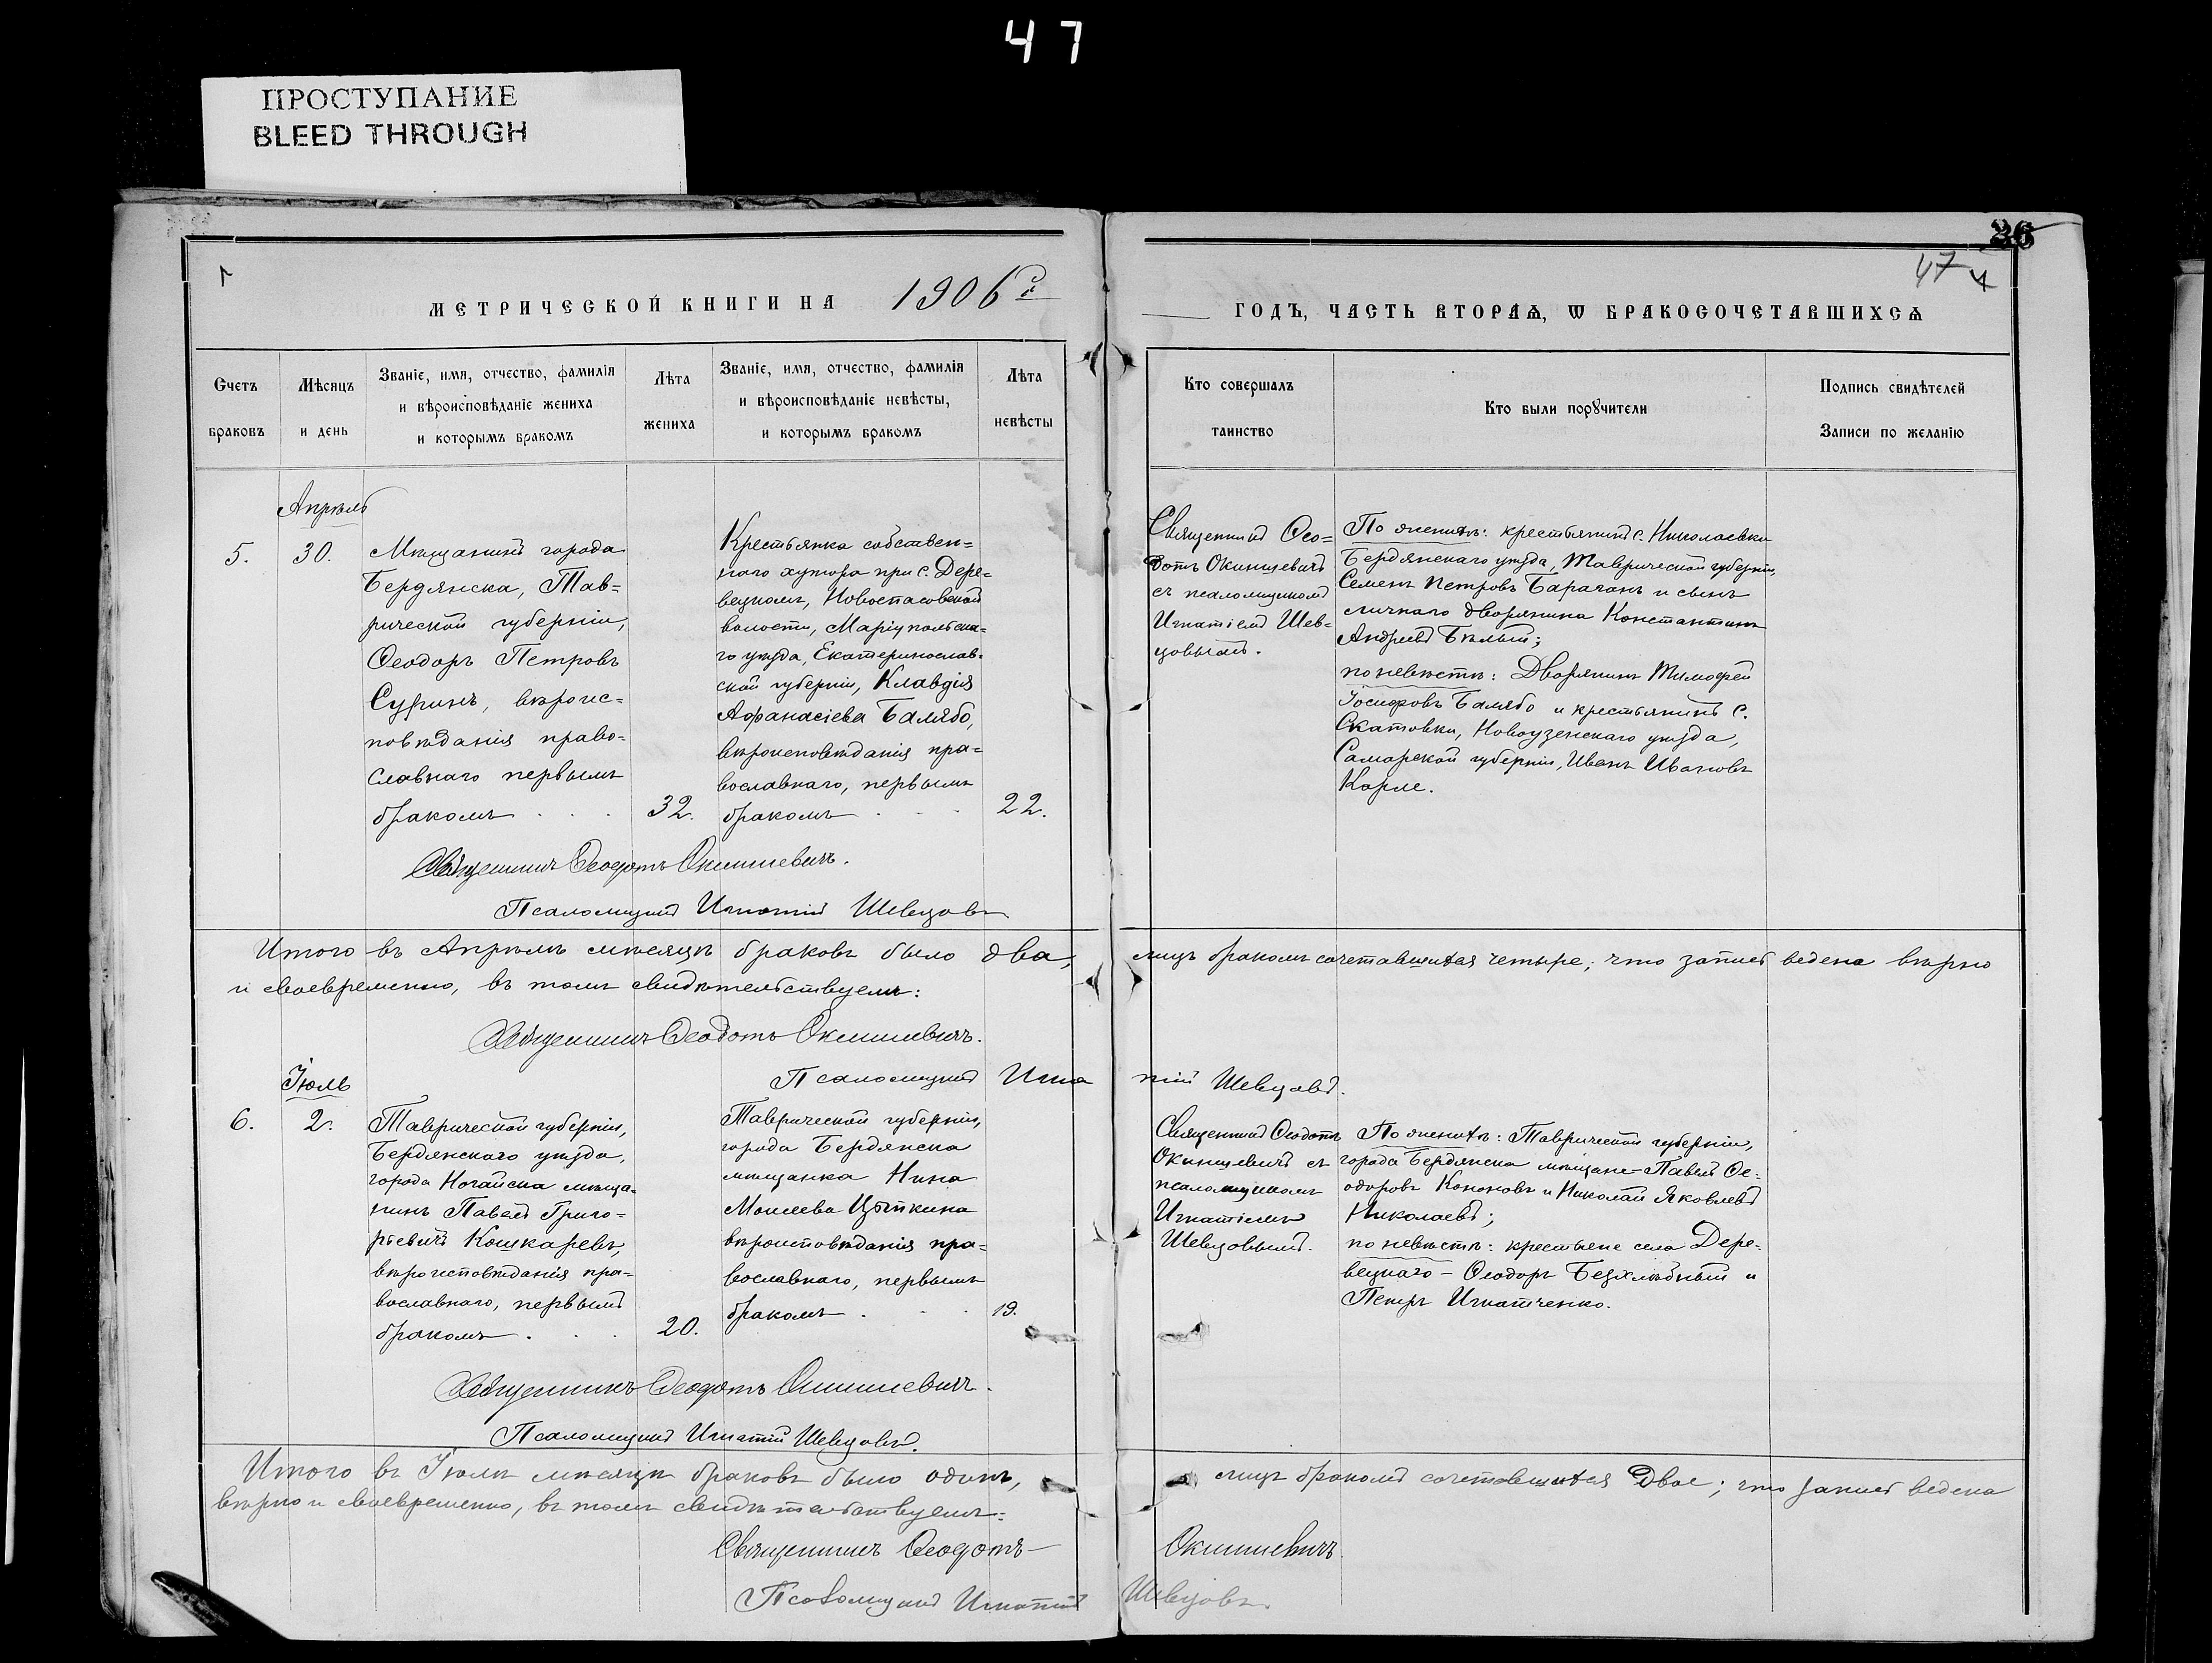 47
ПРОСТУПАНИЕ
BLEED THROUGH
26
47
МЕТРИЧЕСКОЙ КНИГИ НА 1906й
ГОДЪ, ЧАСТЬ ВТОРАѦ, Ѡ БРАКОСОЧЕТАВШИХСѦ
Счетъ
браковъ
Мѣсяцъ
и день
Званіе, имя, отчество, фамилія
и вѣроисповѣданіе жениха
и которымъ бракомъ
Лѣта
жениха
Званіе, имя, отчество, фамилія
и вѣроисповѣданіе невѣсты,
и которымъ бракомъ
Лѣта
невѣсты
Кто совершалъ
таинство
Кто были порꙋчители
Подпись свидѣтелей
Записи по желанію
Апрѣль
5.
30.
Мѣщанинъ города
Бердянска, Тав=
рической губерніи,
Ѳеодоръ Петровъ
Сугинъ, вѣроис=
повѣданія право=
славнаго первымъ
бракомъ . . .
32.
Крестьянка собствен=
наго хутора при с. Дере=
вецкомъ, Новоспасовской
волости, Маріупольска=
го уѣзда, Екатеринослав=
ской губерніи, Клавдія
Аѳанасіева Балябо,
вѣроисповѣданія пра=
вославнаго, первымъ
бракомъ . . .
22.
Священникъ Ѳео=
дотъ Окиншевичъ
съ псаломщикомъ
Игнатіемъ Шев=
цовымъ.
По женихѣ: крестьянинъ с. Николаевки
Бердянскаго уѣзда, Таврической губерніи,
Семенъ Петровъ Барачанъ и сынъ
личнаго дворянина Константинъ
Андреевъ Бѣлый;
по невѣстѣ: Дворянинъ Тимофей
Іосифовъ Балябо и крестьянинъ с.
Скатовки, Новоузенскаго уѣзда,
Самарской губерніи, Иванъ Ивановъ
Карле.
Священникъ Ѳеодотъ Окиншевичъ.
Псаломщикъ Игнатій Шевцовъ
Итого въ Апрѣлѣ мѣсяцѣ браковъ было два, лицъ бракомъ сочетавшихся четыре; что запись ведена вѣрно
и своевременно, въ томъ свидѣтельствуемъ:
Священникъ Ѳеодотъ Окиншевичъ.
Псаломщикъ Игнатій Шевцовъ.
Іюль
6.
2.
Таврической губерніи,
Бердянскаго уѣзда,
города Ногайска мѣща=
нинъ Павелъ Григо=
рьевичъ Кошкаревъ,
вѣроисповѣданія пра=
вославнаго, первымъ
бракомъ . . .
20.
Таврической губерніи,
города Бердянска
мѣщанка Нина
Моисеева Цыткина
вѣроисповѣданія пра=
вославнаго, первымъ
бракомъ . . .
19.
Священникъ Ѳеодотъ
Окиншевичъ съ
псаломщикомъ
Игнатіемъ
Шевцовымъ.
По женихѣ: Таврической губерніи,
города Бердянска мѣщане - Павелъ Ѳе=
одоровъ Кононовъ и Николай Яковлевъ
Николаевъ;
по невѣстѣ: крестьяне села Дере=
вецкаго - Ѳеодоръ Безхлѣбный и
Петръ Игнатченко.
Священникъ Ѳеодотъ Окиншевичъ.
Псаломщикъ Игнатій Шевцовъ.
Итого въ Іюлѣ мѣсяцѣ браковъ было одинъ, лицъ бракомъ сочетавшихся двое; что запись ведена
вѣрно и своевременно, въ томъ свидѣтельствуемъ:
Священникъ Ѳеодотъ Окиншевичъ
Псаломщикъ Игнатій Шевцовъ.